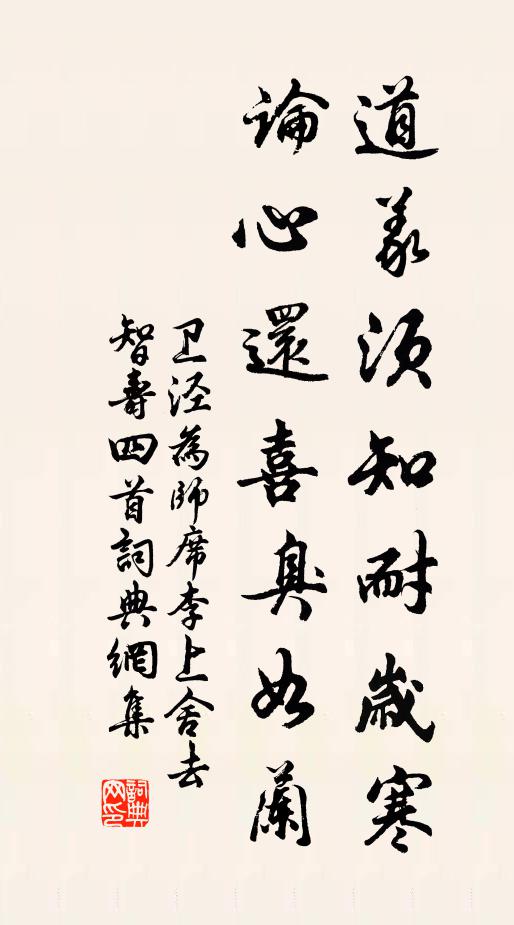 道義須知耐歲寒
論心還喜臭如蘭
卫泾為師席李上舍去
智壽四首詞典網集
詞典网印